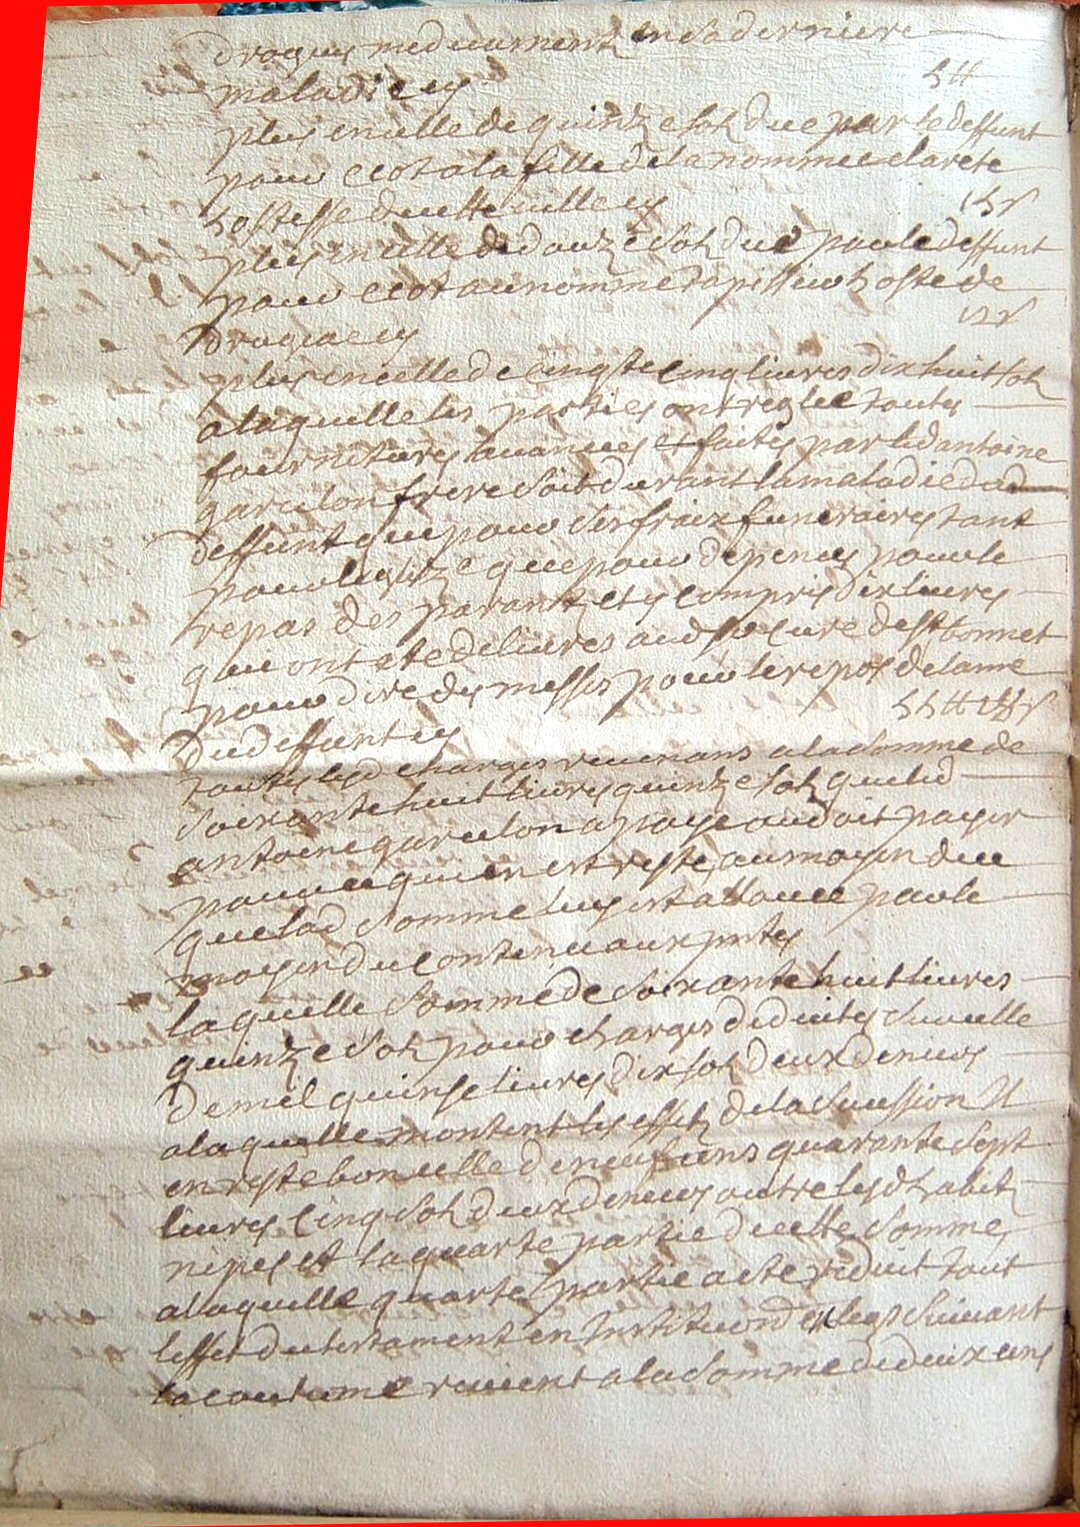 drogues medicaments en sa derniere
maladie cy 5 ₶
plus en celle de quinze solz due par le deffunt
pour ecot a la fille de la nommee clarete
hostesse de cette ville cy 15 s
plus en celle de douze solz due par le deffunt
pour ecot au nomme tapissier hoste de
drugiac cy 12 s
plus en celle de cinqte cinq livres dix huit solz
a laquelle les parties ont regle toutes
fournitures avances et faites par led antoine
garcelon frere soit durant la maladie dud
deffunt que pour les fraix funeraires tant
pour leglize que pour depences pour le
repas des parants et y compris dix livres
qui ont ete delivres aud sr cure de st bonnet
pour dire des messes pour le repos de lame
dud deffunt cy 55 ₶ 18 s
toutes lesd charges revenans a la somme de
soixante huit livres quinze solz que led
antoine garcelon a paye ou doit payer
pour ce qui en est reste au moyen de ce
que lad somme luy est allouee par le
moyen du contenu aux pntes
laquelle somme de soixante huit livres
quinze solz pour charges deduites sur celle
de mil quinse livres dix solz deux deniers
a laquelle montent les effetz de la sucession Il
en reste bon celle de neuf cens quarante sept
livres cinq solz deux deniers outre lesd habitz
nipes et la quarte partie de cette somme
a laquelle quarte partie a ete reduit tout
leffet du testament en Institution et legs suivant
la coutume revient a la somme de deux cens